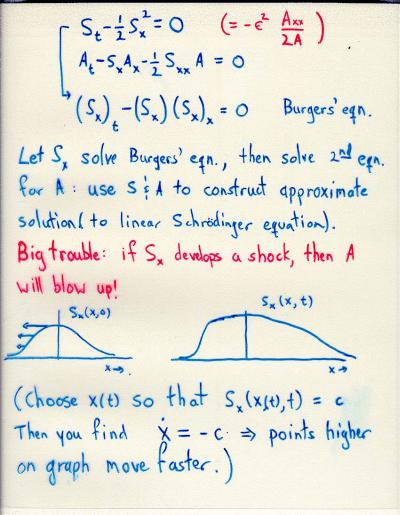 S_t - ½ S_x² = 0 (= -ε² A_xx / 2A)
A_t - S_x A_x - ½ S_xx A = 0
(S_x)_t - (S_x)(S_x)_x = 0 Burgers' eqn.
Let S_x solve Burgers' eqn., then solve 2nd eqn.
for A: use S & A to construct approximate
solution (to linear Schrödinger equation).
Big trouble: if S_x develops a shock, then A
will blow up!
S_x(x,0) S_x(x,t)
x→ x→
(Choose x(t) so that S_x(x(t),t) = c
Then you find ẋ = -c ⇒ points higher
on graph move faster.)